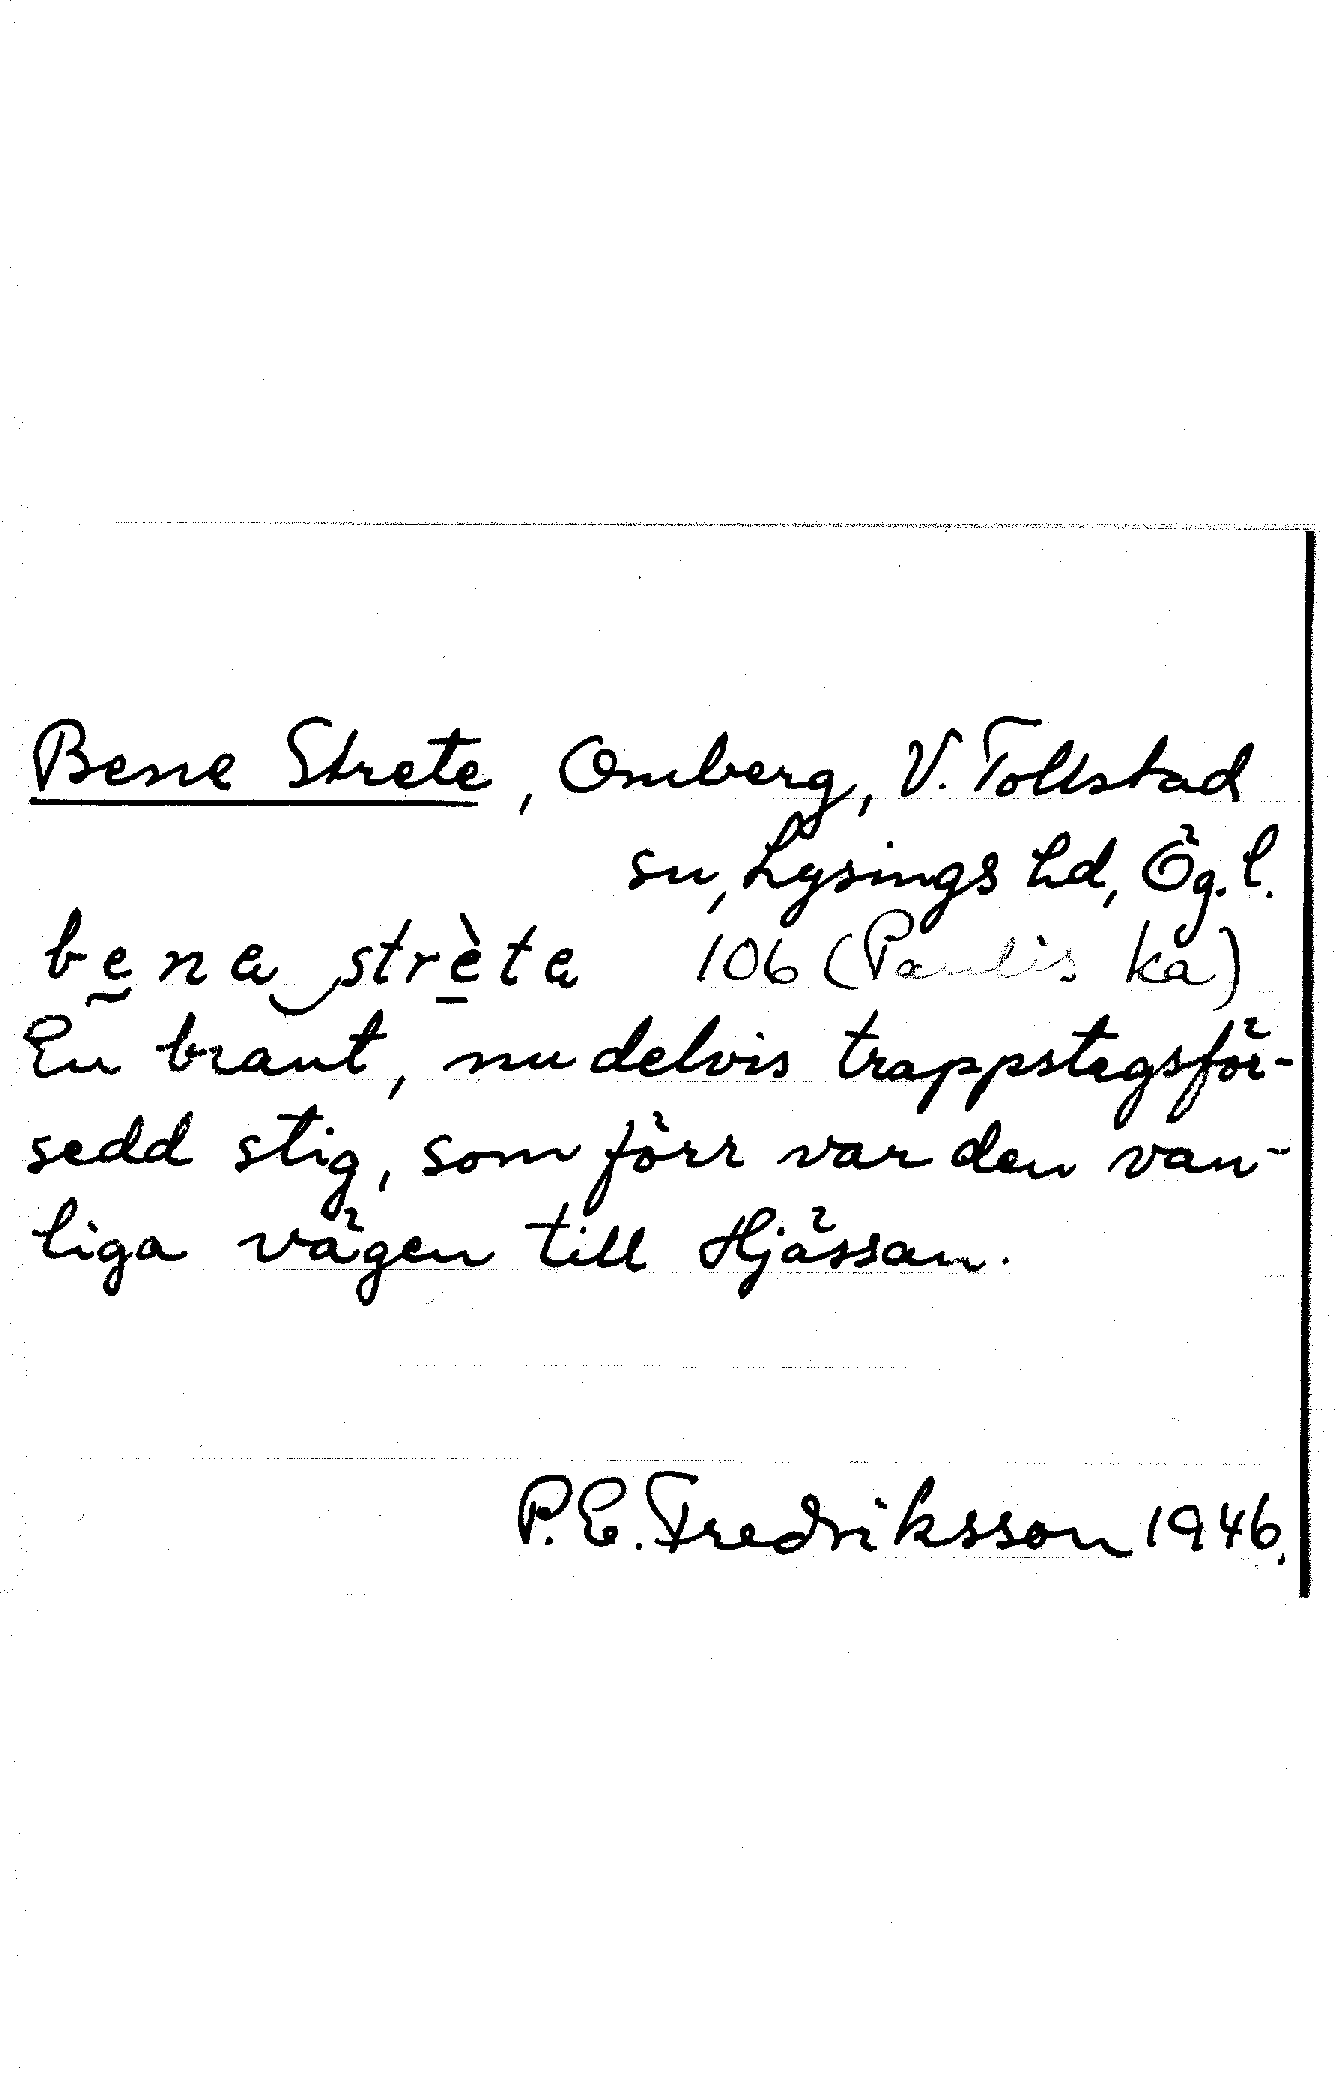 Bene Strete, Omberg, V. Tollstad
sn, Lysings hd, Ög. l.
bena strèta 106 (Paulis ka)
En brant, nu delvis trappstegsför-
sedd stig, som förr var den van-
liga vägen till Hjässan.
P. E. Fredriksson 1946.